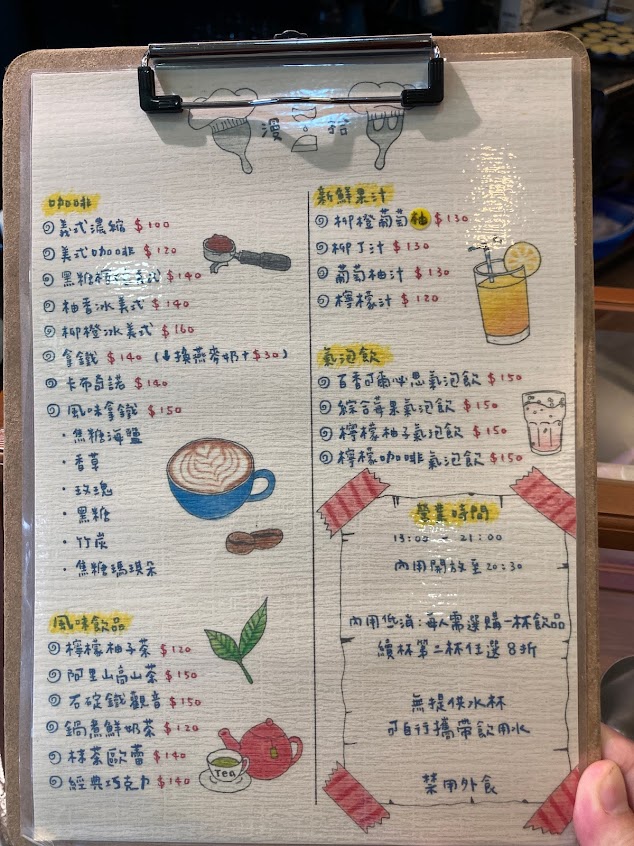 漫 拾
咖啡
義式濃縮 $100
美式咖啡 $120
黑糖 美式 $140
柚香冰美式 $140
柳橙冰美式 $160
拿鐵 $140 (↓換燕麥奶+$30)
卡布奇諾 $140
風味拿鐵 $150
・焦糖海鹽
・香草
・玫瑰
・黑糖
・竹炭
・焦糖瑪琪朵
風味飲品
檸檬柚子茶 $120
阿里山高山茶 $150
石碇鐵觀音 $150
鍋煮鮮奶茶 $120
抹茶歐蕾 $140
經典巧克力 $140
Tea
新鮮果汁
柳橙葡萄柚 $130
柳丁汁 $130
葡萄柚汁 $130
檸檬汁 $120
氣泡飲
百香可爾必思氣泡飲 $150
綜合莓果氣泡飲 $150
檸檬柚子氣泡飲 $150
檸檬咖啡氣泡飲 $150
營業時間
13:00 ~ 21:00
內用開放至20:30
內用低消:每人需選購一杯飲品
續杯第二杯任選8折
無提供水杯
可自行攜帶飲用水
禁用外食